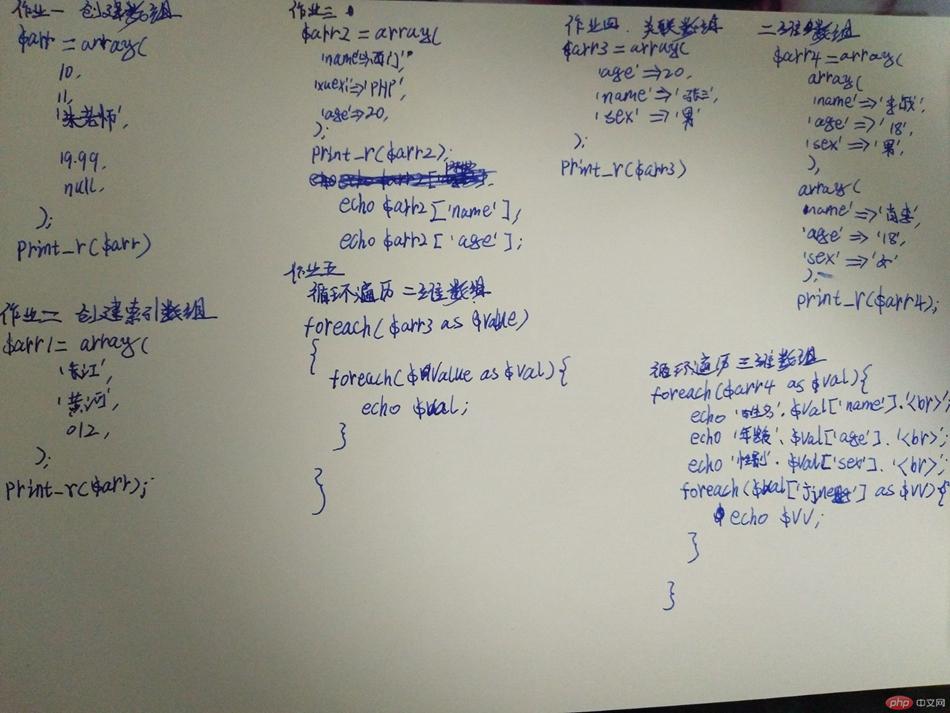 作业一 创建数组
$arr = array(
10,
11,
'朱老师',
19.99,
null,
);
print_r($arr)
作业二 创建索引数组
$arr1= array(
'长江',
'黄河',
012,
);
print_r($arr);
作业三
$arr2 = array(
'name'=>'西门',
'xuexi'=>'PHP',
'age'=>20,
);
print_r($arr2);
echo $arr2['name'],
echo $arr2['age'];
作业五
循环遍历 二维数组
foreach($arr3 as $value)
{
foreach($value as $val){
echo $val;
}
}
作业四. 关联数组
$arr3 = array(
'age'=>20,
'name'=>'张三',
'sex'=>'男'
);
print_r($arr3)
二维数组
$arr4 = array(
array(
'name'=>'
'age'=>'18',
'sex'=>'男',
),
array(
name'=>'
'age'=>'18',
'sex'=>'女'
);
print_r($arr4);
循环遍历 三维数组
foreach($arr4 as $val){
echo '姓名'.$val['name'].'<br>';
echo '年龄'.$val['age'].'<br>';
echo '性别'.$val['sex'].'<br>';
foreach($val[' '] as $vv){
echo $vv;
}
}
php 中文网